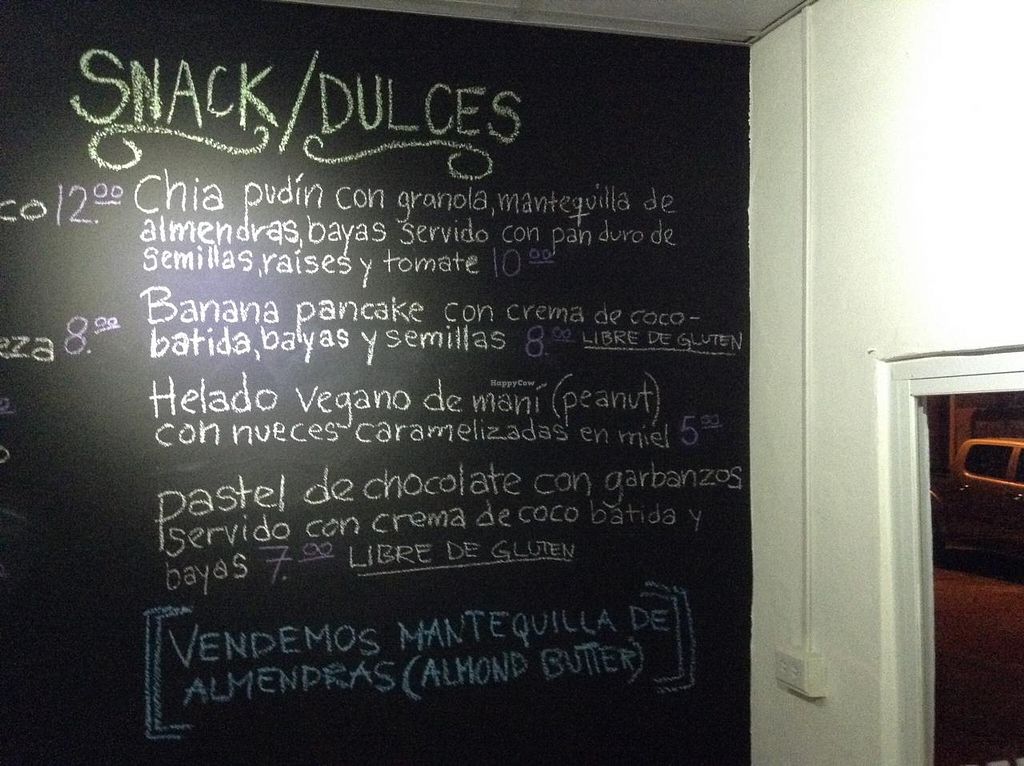 SNACK/DULCES
co 12.00 Chia pudín con granola, mantequilla de
almendras, bayas servido con pan duro de
semillas, raises y tomate 10.00
Banana pancake con crema de coco-
eza 8.00 batida, bayas y semillas 8.00 LIBRE DE GLUTEN
HappyCow
Helado vegano de maní (peanut)
con nueces caramelizadas en miel 5.00
pastel de chocolate con garbanzos
servido con crema de coco batida y
bayas 7.00 LIBRE DE GLUTEN
[VENDEMOS MANTEQUILLA DE
ALMENDRAS (ALMOND BUTTER)]